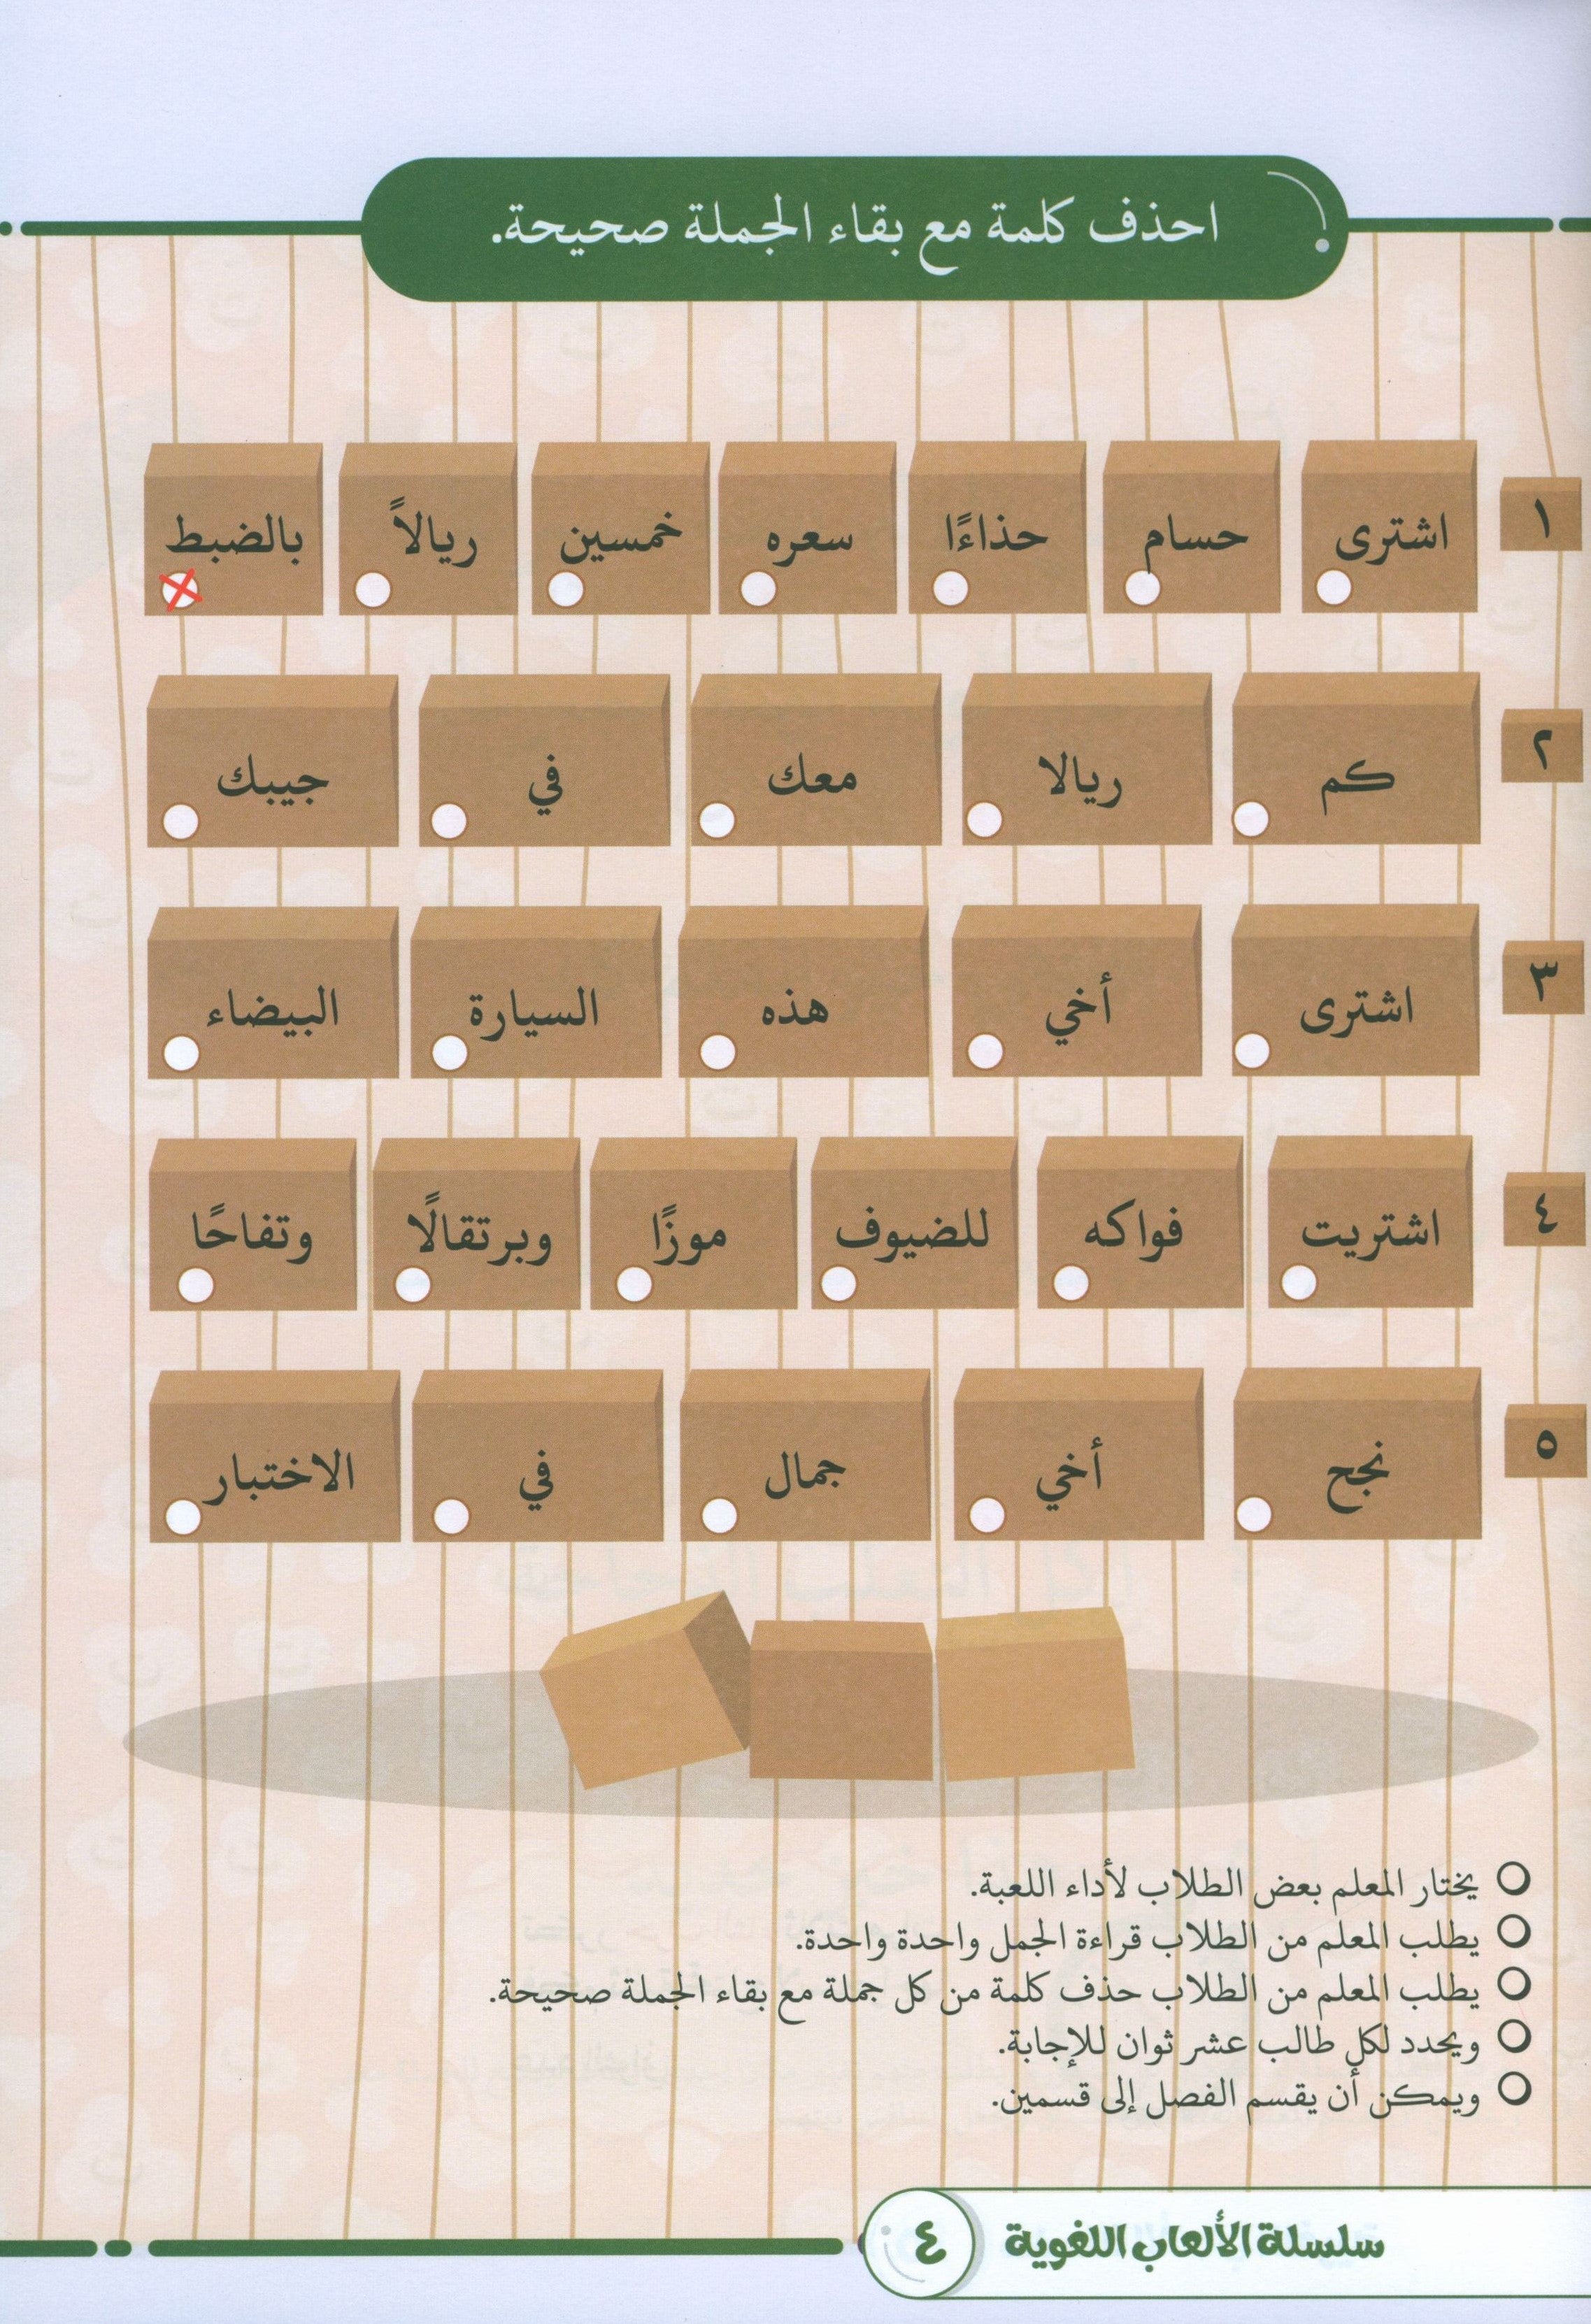 احذف كلمة مع بقاء الجملة صحيحة.
١ اشترى حسام حذاءًا سعره خمسين ريالاً بالضبط
٢ كم ريالا معك في جيبك
٣ اشترى أخي هذه السيارة البيضاء
٤ اشتريت فواكه للضيوف موزًا وبرتقالًا وتفاحًا
٥ نجح أخي جمال في الاختبار
يختار المعلم بعض الطلاب لأداء اللعبة.
يطلب المعلم من الطلاب قراءة الجمل واحدة واحدة.
يطلب المعلم من الطلاب حذف كلمة من كل جملة مع بقاء الجملة صحيحة.
ويحدد لكل طالب عشر ثوان للإجابة.
ويمكن أن يقسم الفصل إلى قسمين.
سلسلة الألعاب اللغوية ٤